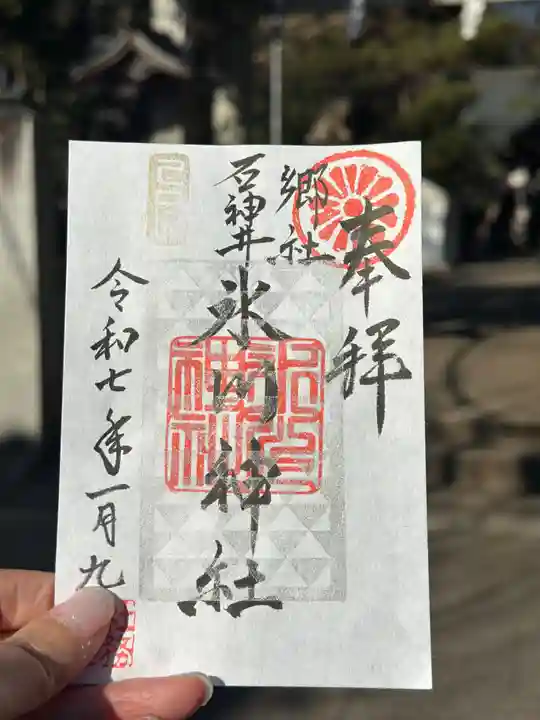 奉拝
郷社
石神井
氷川神社
令和七年一月九